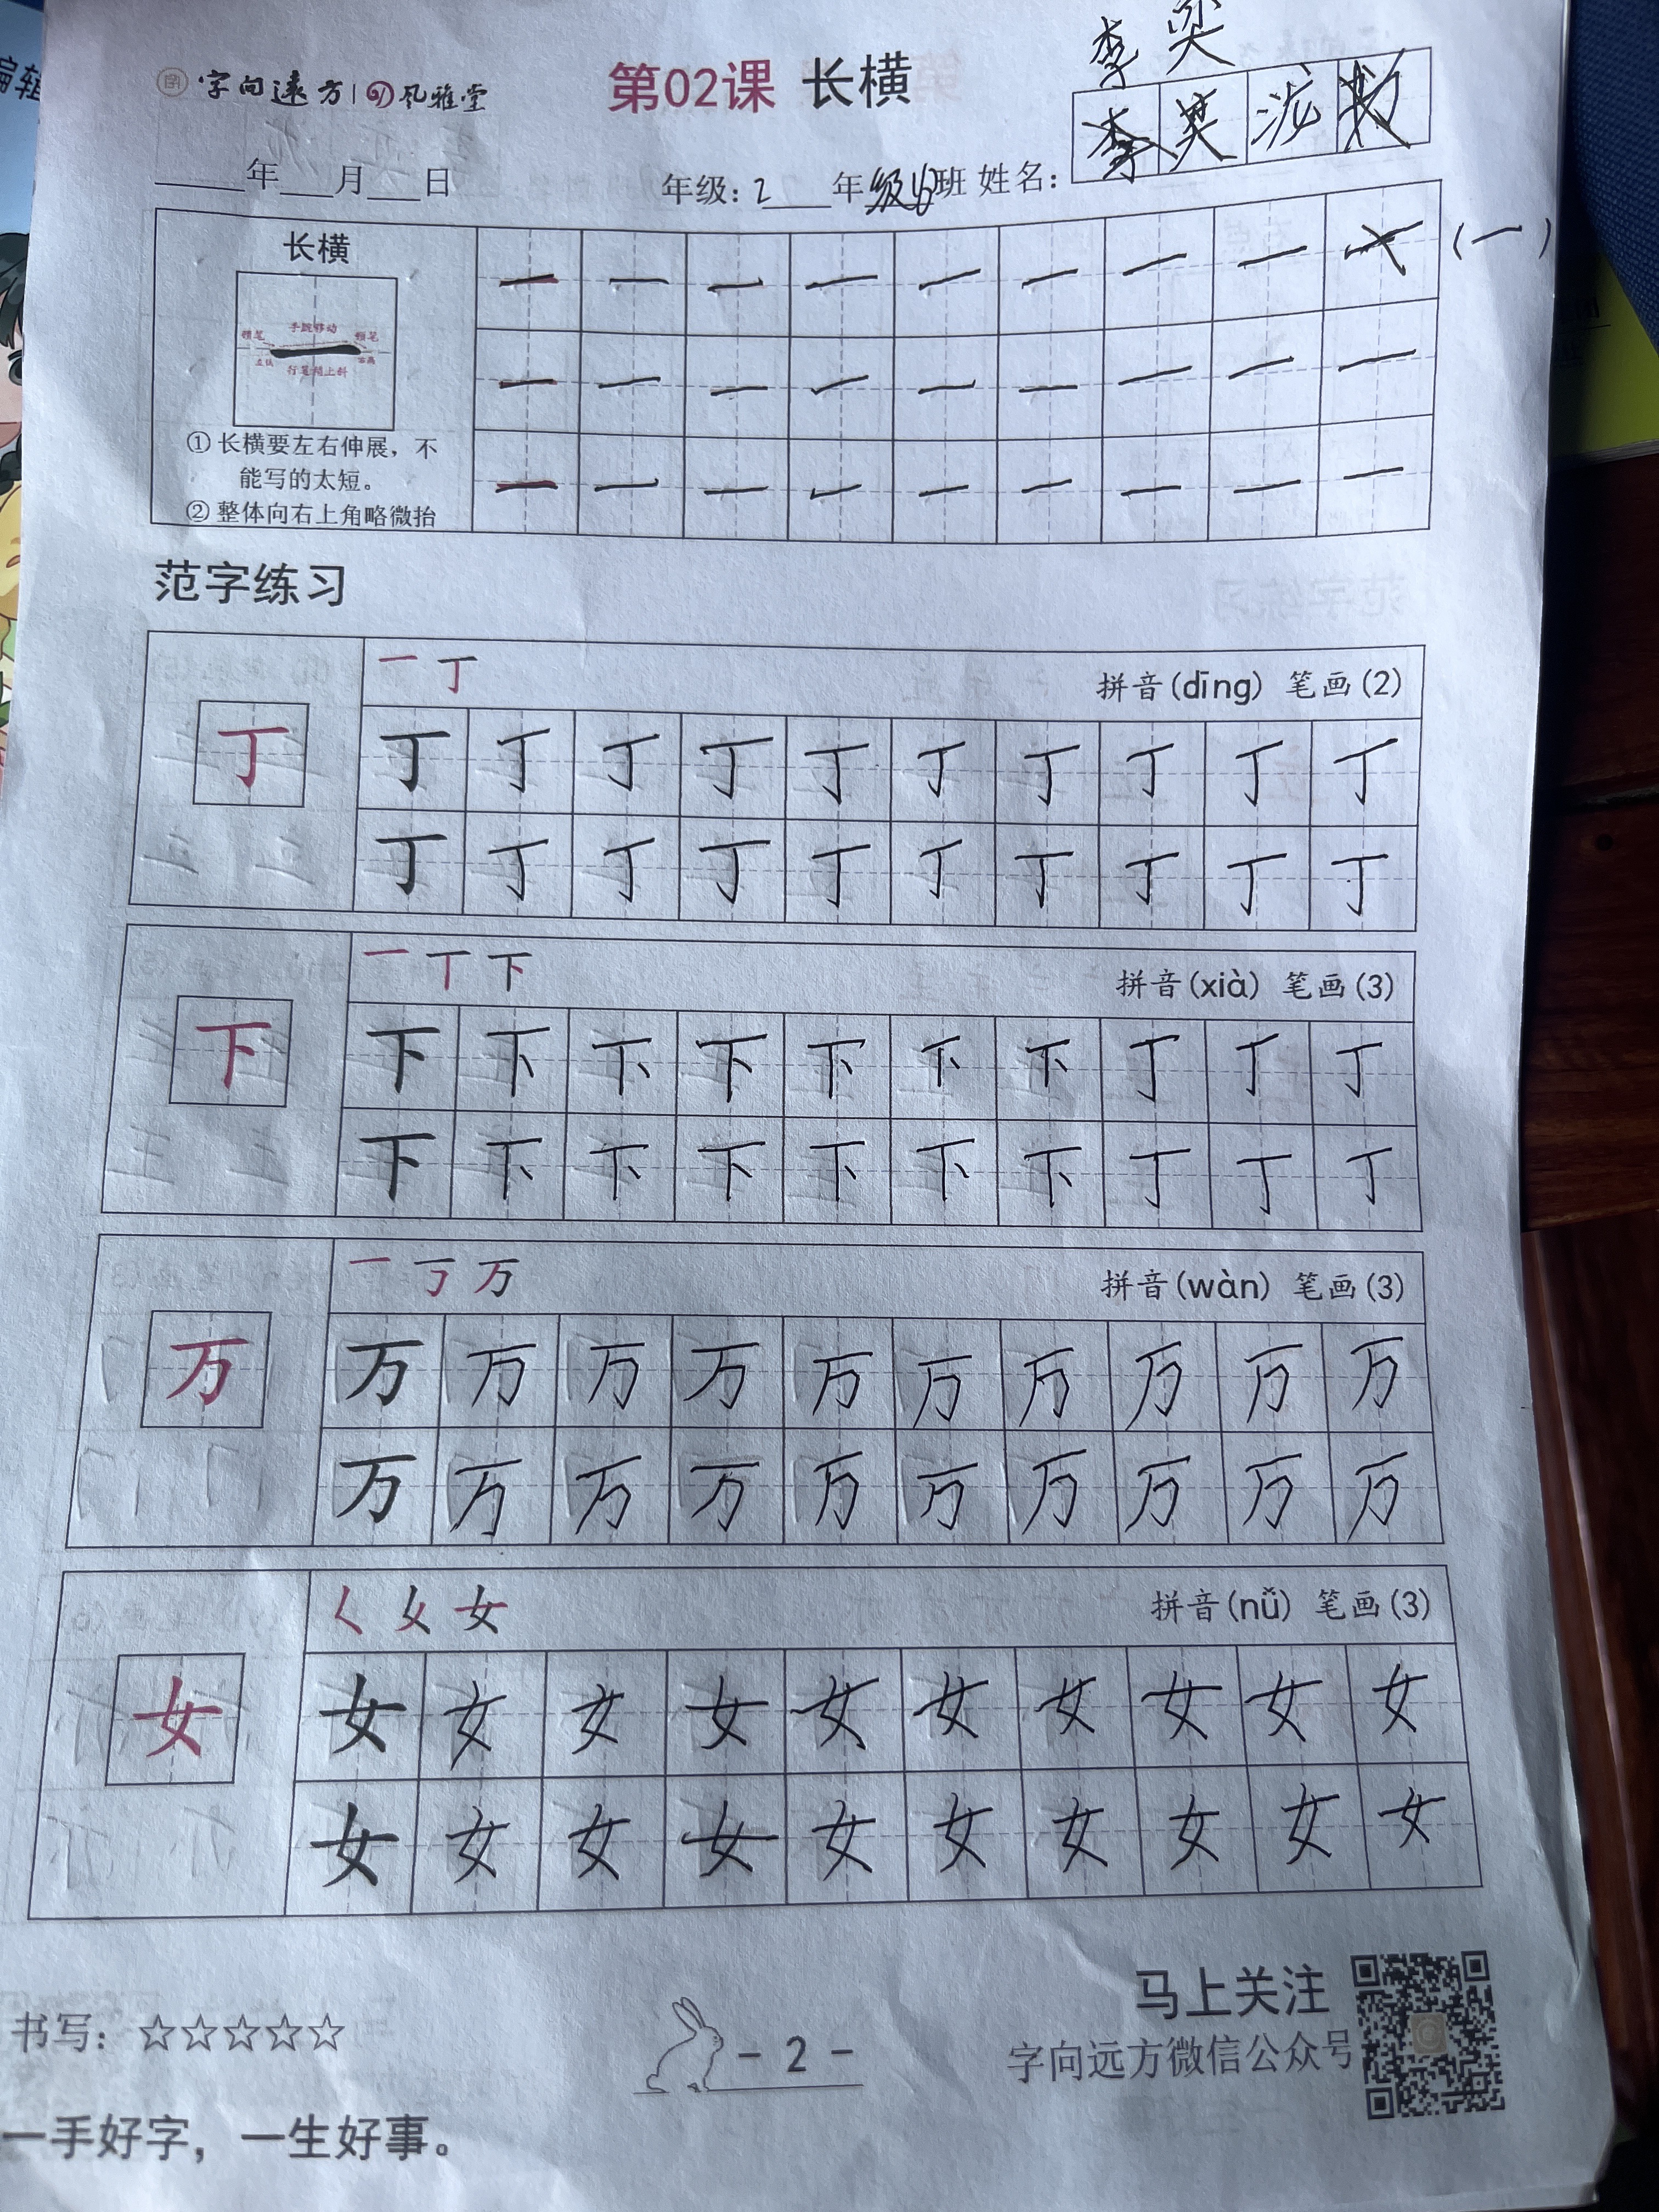 李奕
字向远方 风雅堂 第02课 长横
李 奕 泷
年 月 日 年级:2 年级 班 姓名:
长横
一 一 一 一 一 一 一 一 (一)
手腕移动
顿笔 顿笔
行笔稍上斜
一 一 一 一 一 一 一 一 一
①长横要左右伸展，不
能写的太短。
②整体向右上角略微抬
一 一 一 一 一 一 一 一 一
范字练习
一 丁 拼音(dīng) 笔画(2)
丁 丁 丁 丁 丁 丁 丁 丁 丁 丁 丁
丁 丁 丁 丁 丁 丁 丁 丁 丁 丁
一 丅 下 拼音(xià) 笔画(3)
下 下 下 下 下 下 下 下 丁 丁 丁
下 下 下 下 下 下 下 丁 丁 丁
一 丂 万 拼音(wàn) 笔画(3)
万 万 万 万 万 万 万 万 万 万 万
万 万 万 万 万 万 万 万 万 万
㇛ 女 女 拼音(nǚ) 笔画(3)
女 女 女 女 女 女 女 女 女 女 女
女 女 女 女 女 女 女 女 女 女
书写：☆☆☆☆☆
- 2 -
马上关注
字向远方微信公众号
一手好字，一生好事。